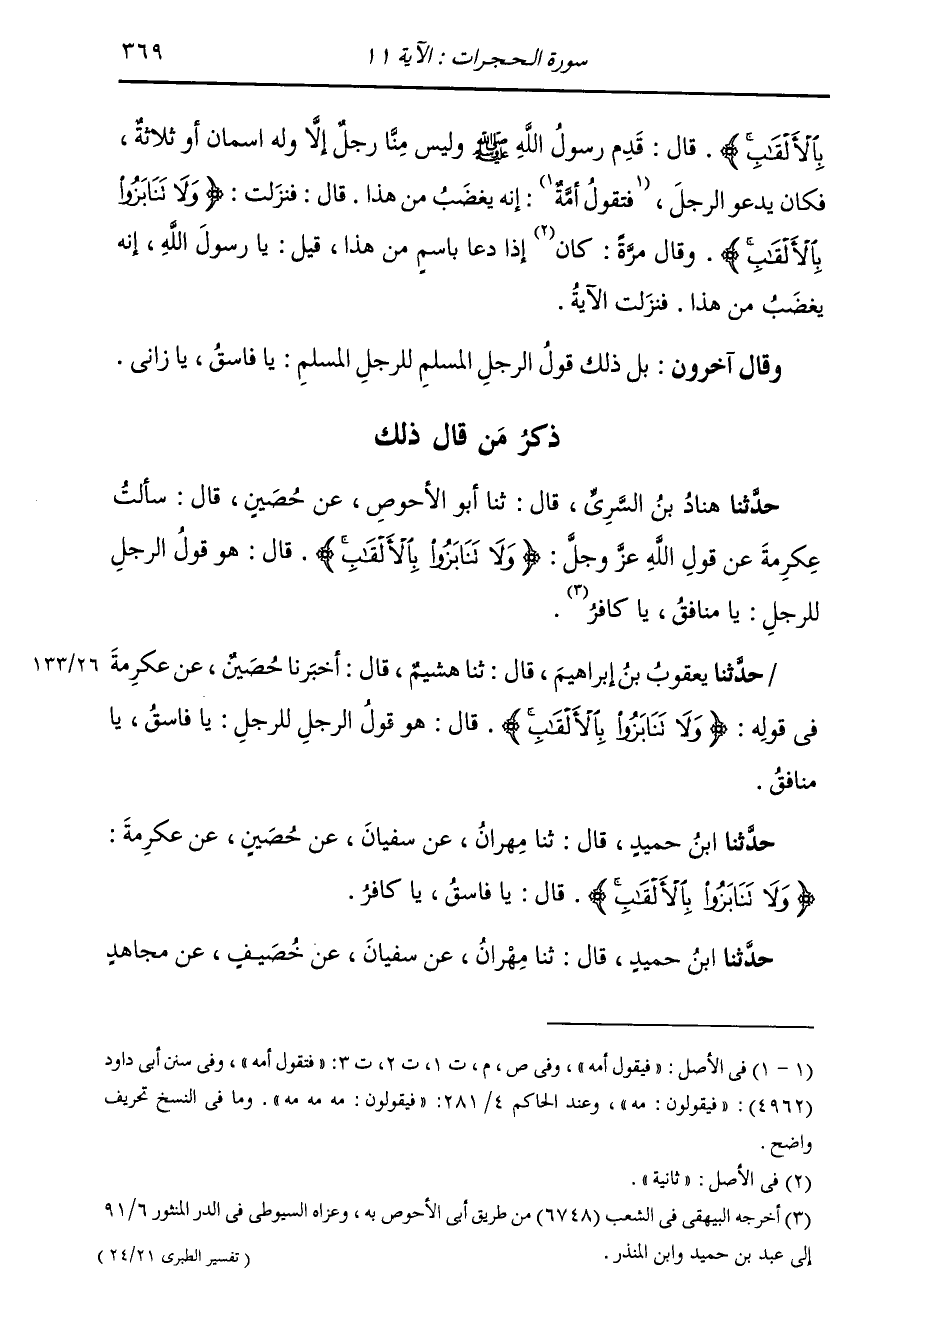 سورة الحجرات : الآية ١١
٣٦٩
بِٱلْأَلْقَٰبِۖ ﴾ . قال : قَدِم رسولُ اللَّهِ ﷺ وليس مِنَّا رجلٌ إلَّا وله اسمان أو ثلاثةٌ ،
فكان يدعو الرجلَ ، (١فتقولُ أمَّةٌ١) : إنه يغضَبُ من هذا . قال : فنزَلت : ﴿ وَلَا تَنَابَزُوا۟
بِٱلْأَلْقَٰبِۖ ﴾ . وقال مرَّةً : كان(٢) إذا دعا باسمٍ من هذا ، قيل : يا رسولَ اللَّهِ ، إنه
يغضَبُ من هذا . فنزَلت الآيةُ .
وقال آخرون : بل ذلك قولُ الرجلِ المسلمِ للرجلِ المسلمِ : يا فاسقُ ، يا زانى .
ذكرُ مَن قال ذلك
حدَّثنا هنادُ بنُ السَّرِىِّ ، قال : ثنا أبو الأحوصِ ، عن حُصَينٍ ، قال : سألتُ
عِكرِمةَ عن قولِ اللَّهِ عزَّ وجلَّ : ﴿ وَلَا تَنَابَزُوا۟ بِٱلْأَلْقَٰبِۖ ﴾ . قال : هو قولُ الرجلِ
للرجلِ : يا منافقُ ، يا كافرُ(٣) .
/ حدَّثنا يعقوبُ بنُ إبراهيمَ ، قال : ثنا هشيمٌ ، قال : أخبَرنا حُصَينٌ ، عن عكرمةَ ١٣٣/٢٦
فى قولِه : ﴿ وَلَا تَنَابَزُوا۟ بِٱلْأَلْقَٰبِۖ ﴾ . قال : هو قولُ الرجلِ للرجلِ : يا فاسقُ ، يا
منافقُ .
حدَّثنا ابنُ حميدٍ ، قال : ثنا مِهرانُ ، عن سفيانَ ، عن حُصَينٍ ، عن عكرمةَ :
﴿ وَلَا تَنَابَزُوا۟ بِٱلْأَلْقَٰبِۖ ﴾ . قال : يا فاسقُ ، يا كافرُ .
حدَّثنا ابنُ حميدٍ ، قال : ثنا مِهْرانُ ، عن سفيانَ ، عن خُصَيفٍ ، عن مجاهدٍ
(١ - ١) فى الأصل : « فيقول أمه » ، وفى ص ، م ، ت ١، ت ٢، ت ٣: « فتقول أمه » ، وفى سنن أبى داود
(٤٩٦٢) : « فيقولون : مه » ، وعند الحاكم ٤/ ٢٨١: « فيقولون : مه مه مه » . وما فى النسخ تحريف
واضح .
(٢) فى الأصل : « ثانية » .
(٣) أخرجه البيهقى فى الشعب (٦٧٤٨) من طريق أبى الأحوص به ، وعزاه السيوطى فى الدر المنثور ٩١/٦
إلى عبد بن حميد وابن المنذر .
( تفسير الطبرى ٢٤/٢١ )